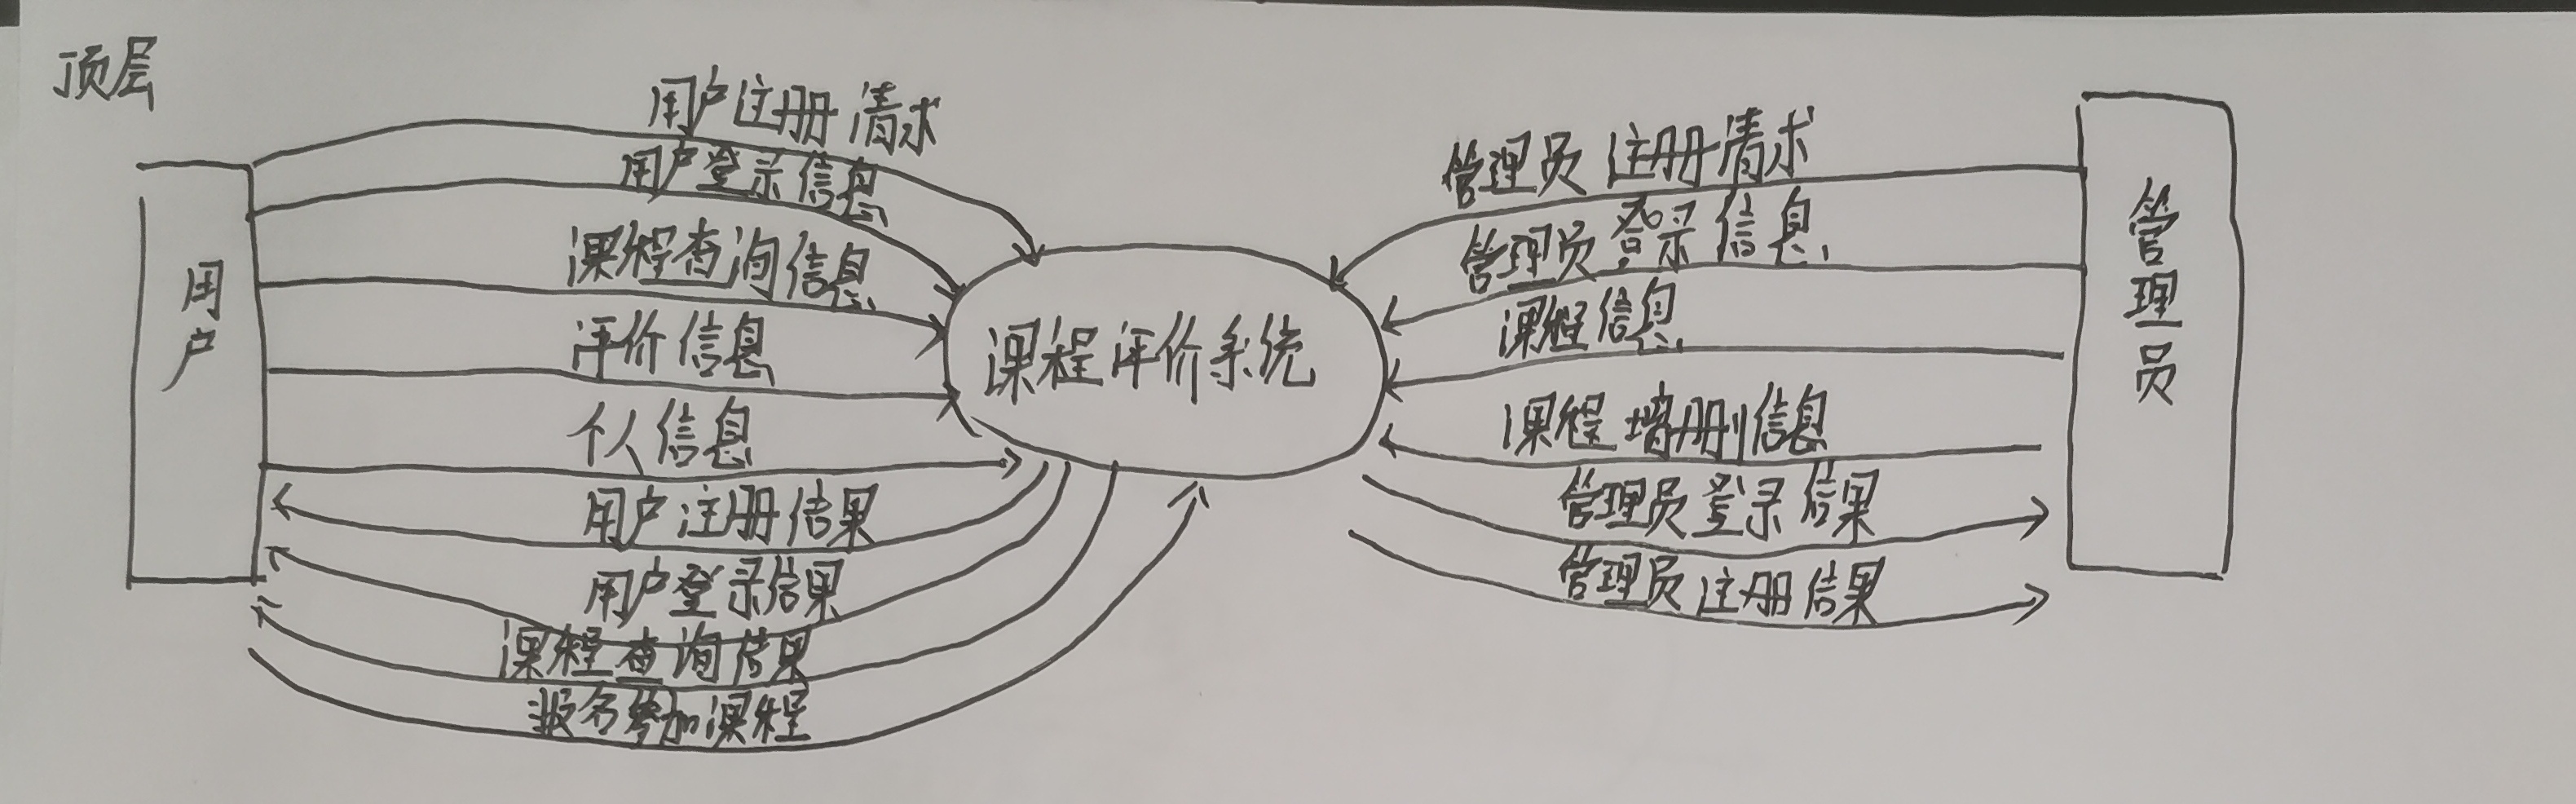 顶层
用户注册请求
用户登录信息
课程查询信息
评价信息
个人信息
用户注册结果
用户登录结果
课程查询结果
报名参加课程
用户
课程评价系统
管理员注册请求
管理员登录信息
课程信息
课程增删信息
管理员登录结果
管理员注册结果
管理员